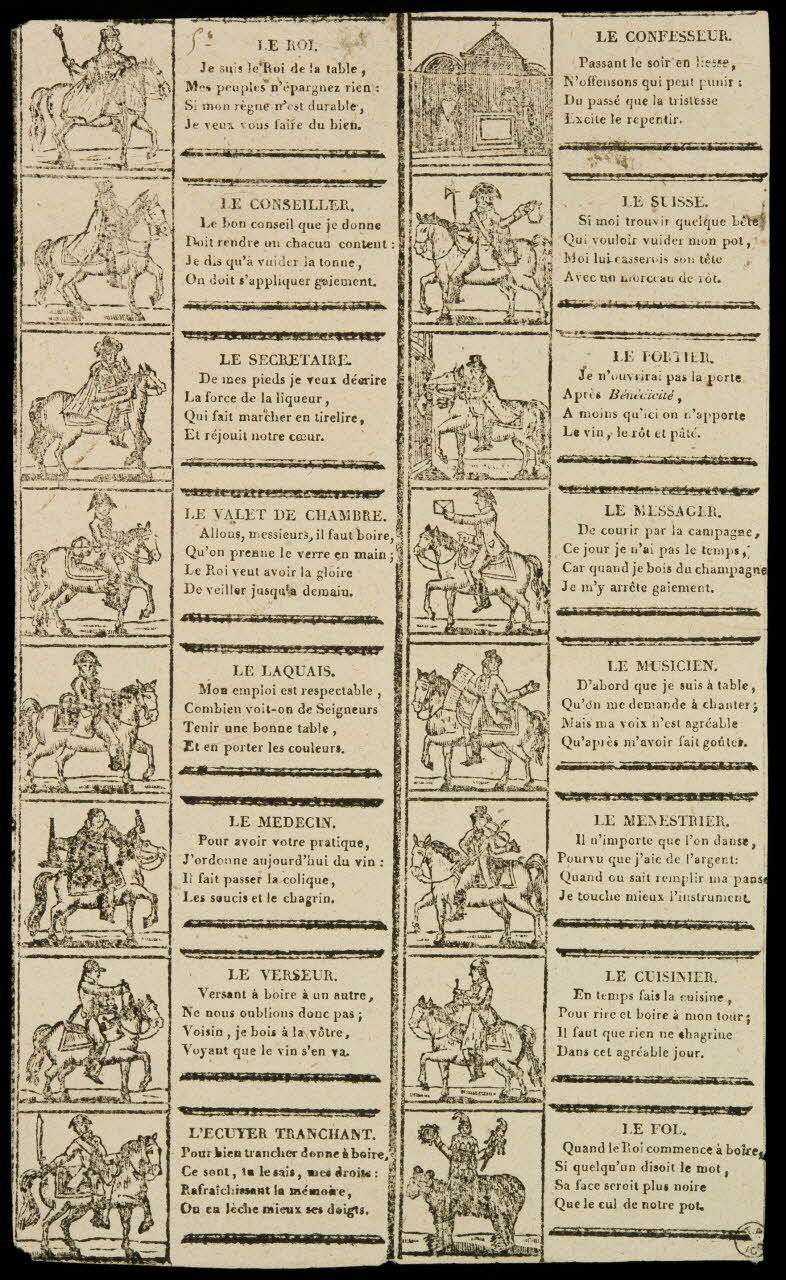 LE ROI.
Je suis le Roi de la table,
Mes peuples n'épargnez rien :
Si mon règne n'est durable,
Je veux vous faire du bien.
LE CONSEILLER.
Le bon conseil que je donne
Doit rendre un chacun content :
Je dis qu'à vuider la tonne,
On doit s'appliquer gaiement.
LE SECRETAIRE.
De mes pieds je veux décrire
La force de la liqueur,
Qui fait marcher en tirelire,
Et réjouit notre cœur.
LE VALET DE CHAMBRE.
Allons, messieurs, il faut boire,
Qu'on prenne le verre en main ;
Le Roi veut avoir la gloire
De veiller jusqu'a demain.
LE LAQUAIS.
Mon emploi est respectable,
Combien voit-on de Seigneurs
Tenir une bonne table,
Et en porter les couleurs.
LE MEDECIN.
Pour avoir votre pratique,
J'ordonne aujourd'hui du vin :
Il fait passer la colique,
Les soucis et le chagrin.
LE VERSEUR.
Versant à boire à un autre,
Ne nous oublions donc pas ;
Voisin, je bois à la vôtre,
Voyant que le vin s'en va.
L'ECUYER TRANCHANT.
Pour bien trancher donne à boire,
Ce sont, tu le sais, mes droits :
Rafraîchissant la mémoire,
On en lèche mieux ses doigts.
LE CONFESSEUR.
Passant le soir en liesse,
N'offensons qui peut punir :
Du passé que la tristesse
Excite le repentir.
LE SUISSE.
Si moi trouvir quelque bête
Qui vouloir vuider mon pot,
Moi lui casserois son tête
Avec un morceau de rôt.
LE PORTIER.
Je n'ouvrirai pas la porte
Après Bénécicité,
A moins qu'ici on n'apporte
Le vin, le rôt et pâté.
LE MESSAGER.
De courir par la campagne,
Ce jour je n'ai pas le temps,
Car quand je bois du champagne
Je m'y arrête gaiement.
LE MUSICIEN.
D'abord que je suis à table,
Qu'on me demande à chanter ;
Mais ma voix n'est agréable
Qu'après m'avoir fait goûter.
LE MENESTRIER.
Il n'importe que l'on danse,
Pourvu que j'aie de l'argent :
Quand on sait remplir ma panse
Je touche mieux l'instrument.
LE CUISINIER.
En temps fais la cuisine,
Pour rire et boire à mon tour ;
Il faut que rien ne chagrine
Dans cet agréable jour.
LE FOL.
Quand le Roi commence à boire,
Si quelqu'un disoit le mot,
Sa face seroit plus noire
Que le cul de notre pot.